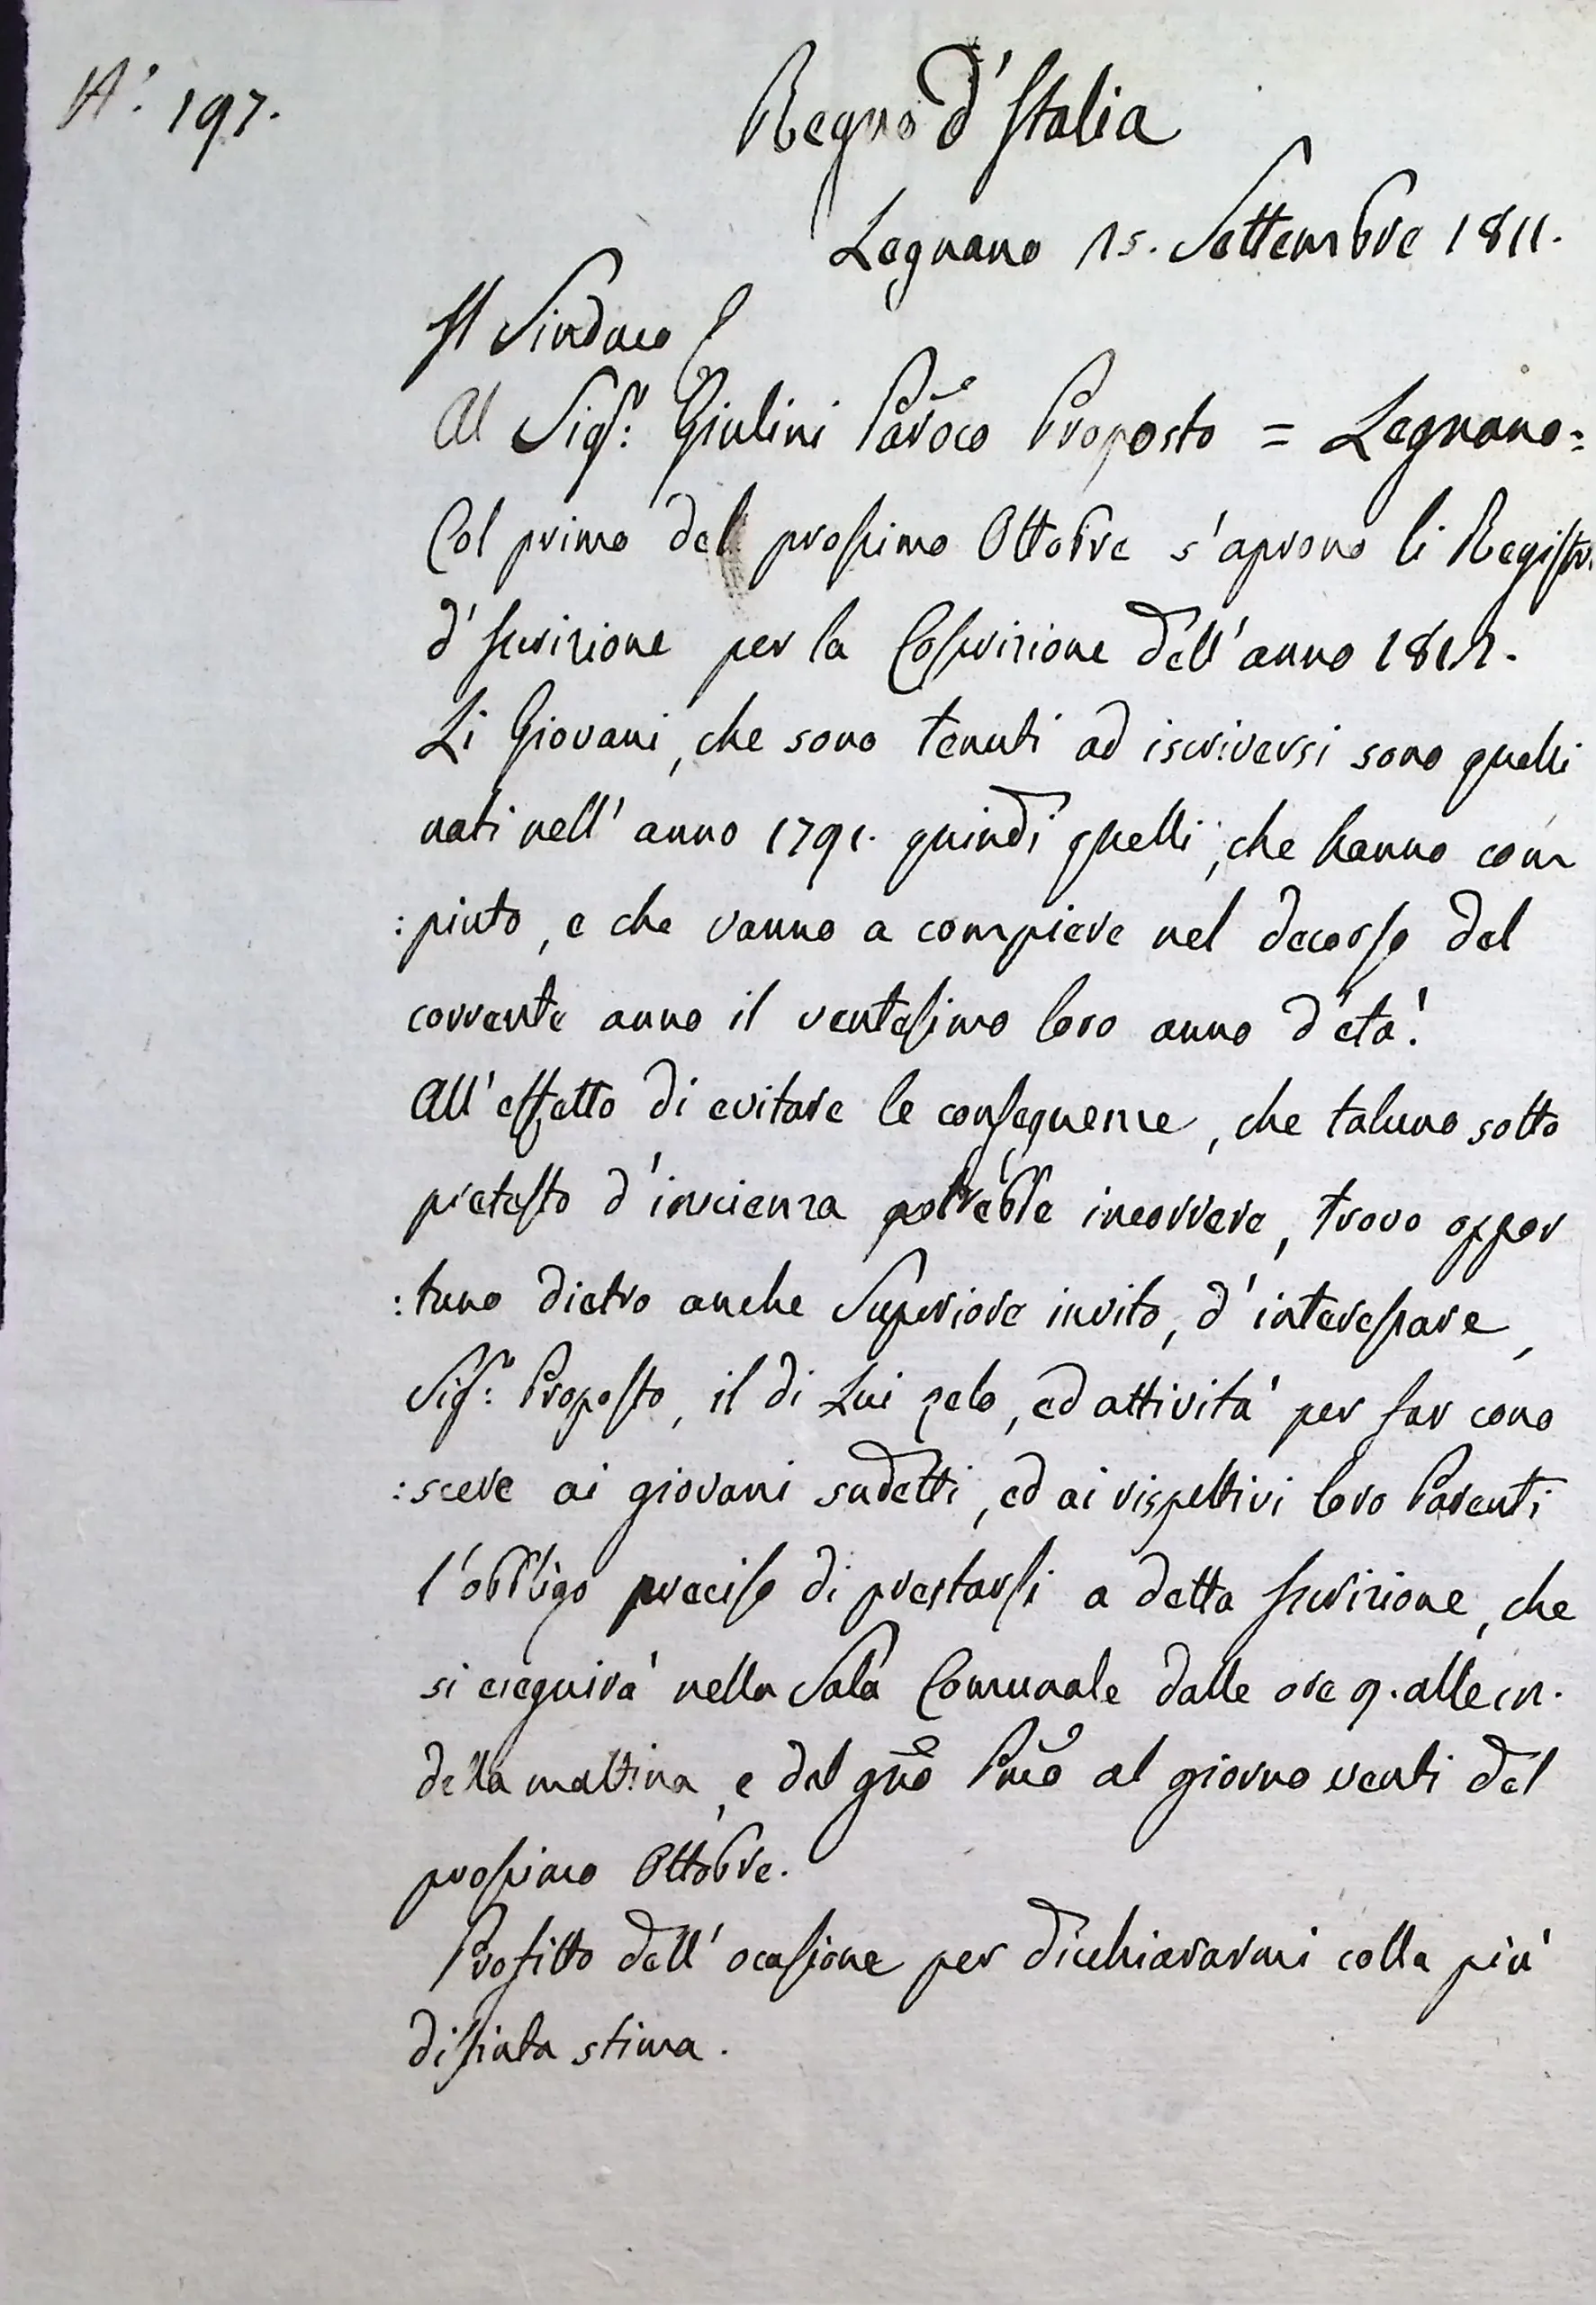 N.° 197.
Regno d'Italia
Legnano 25. Settembre 1811.
Il Sindaco
Al Sigr. Giulini Paroco Proposto = Legnano =
Col primo del prossimo Ottobre s'aprono li Registri
d'Iscrizione per la Coscrizione dell'anno 1812.
Li Giovani, che sono tenuti ad iscriversi sono quelli
nati nell'anno 1791. quindi quelli, che hanno com
:piuto, e che vanno a compiere nel decorso del
corrente anno il ventesimo loro anno d'età.
All'effetto di evitare le conseguenze, che taluno sotto
pretesto d'inscienza potrebbe incorrere, trovo oppor
:tuno dietro anche Superiore invito, d'interessare,
Sigr. Proposto, il di Lui zelo, ed attività per far cono
:scere ai giovani sudetti, ed ai rispettivi loro Parenti
l'obbligo preciso di prestarsi a detta Iscrizione, che
si eseguirà nella Sala Comunale dalle ore 9. alle 12.
della mattina, e dal gno Pmo al giorno venti del
prossimo Ottobre.
Profitto dell'ocasione per dichiararmi colla più
disinta stima.